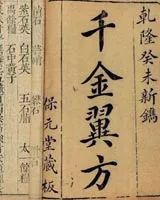 乾隆癸未新鐫
千金翼方
保元堂藏板
紫石英
白石英
五石脂
太一餘糧
石中黃子